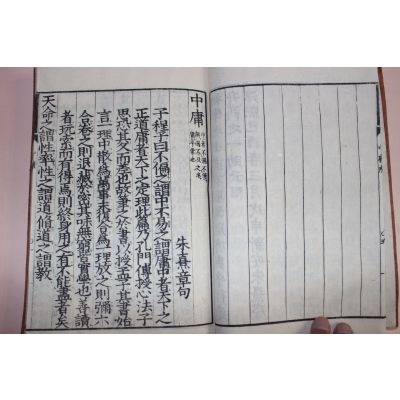 中庸
中者不偏不倚
無過不及之名
庸平常也
朱熹章句
子程子曰不偏之謂中不易之謂庸中者天下之
正道庸者天下之定理此篇乃孔門傳授心法子
思恐其久而差也故筆之於書以授孟子其書始
言一理中散爲萬事末復合爲一理放之則彌六
合卷之則退藏於密其味無窮皆實學也善讀
者玩索而有得焉則終身用之有不能盡者矣
天命之謂性率性之謂道修道之謂教